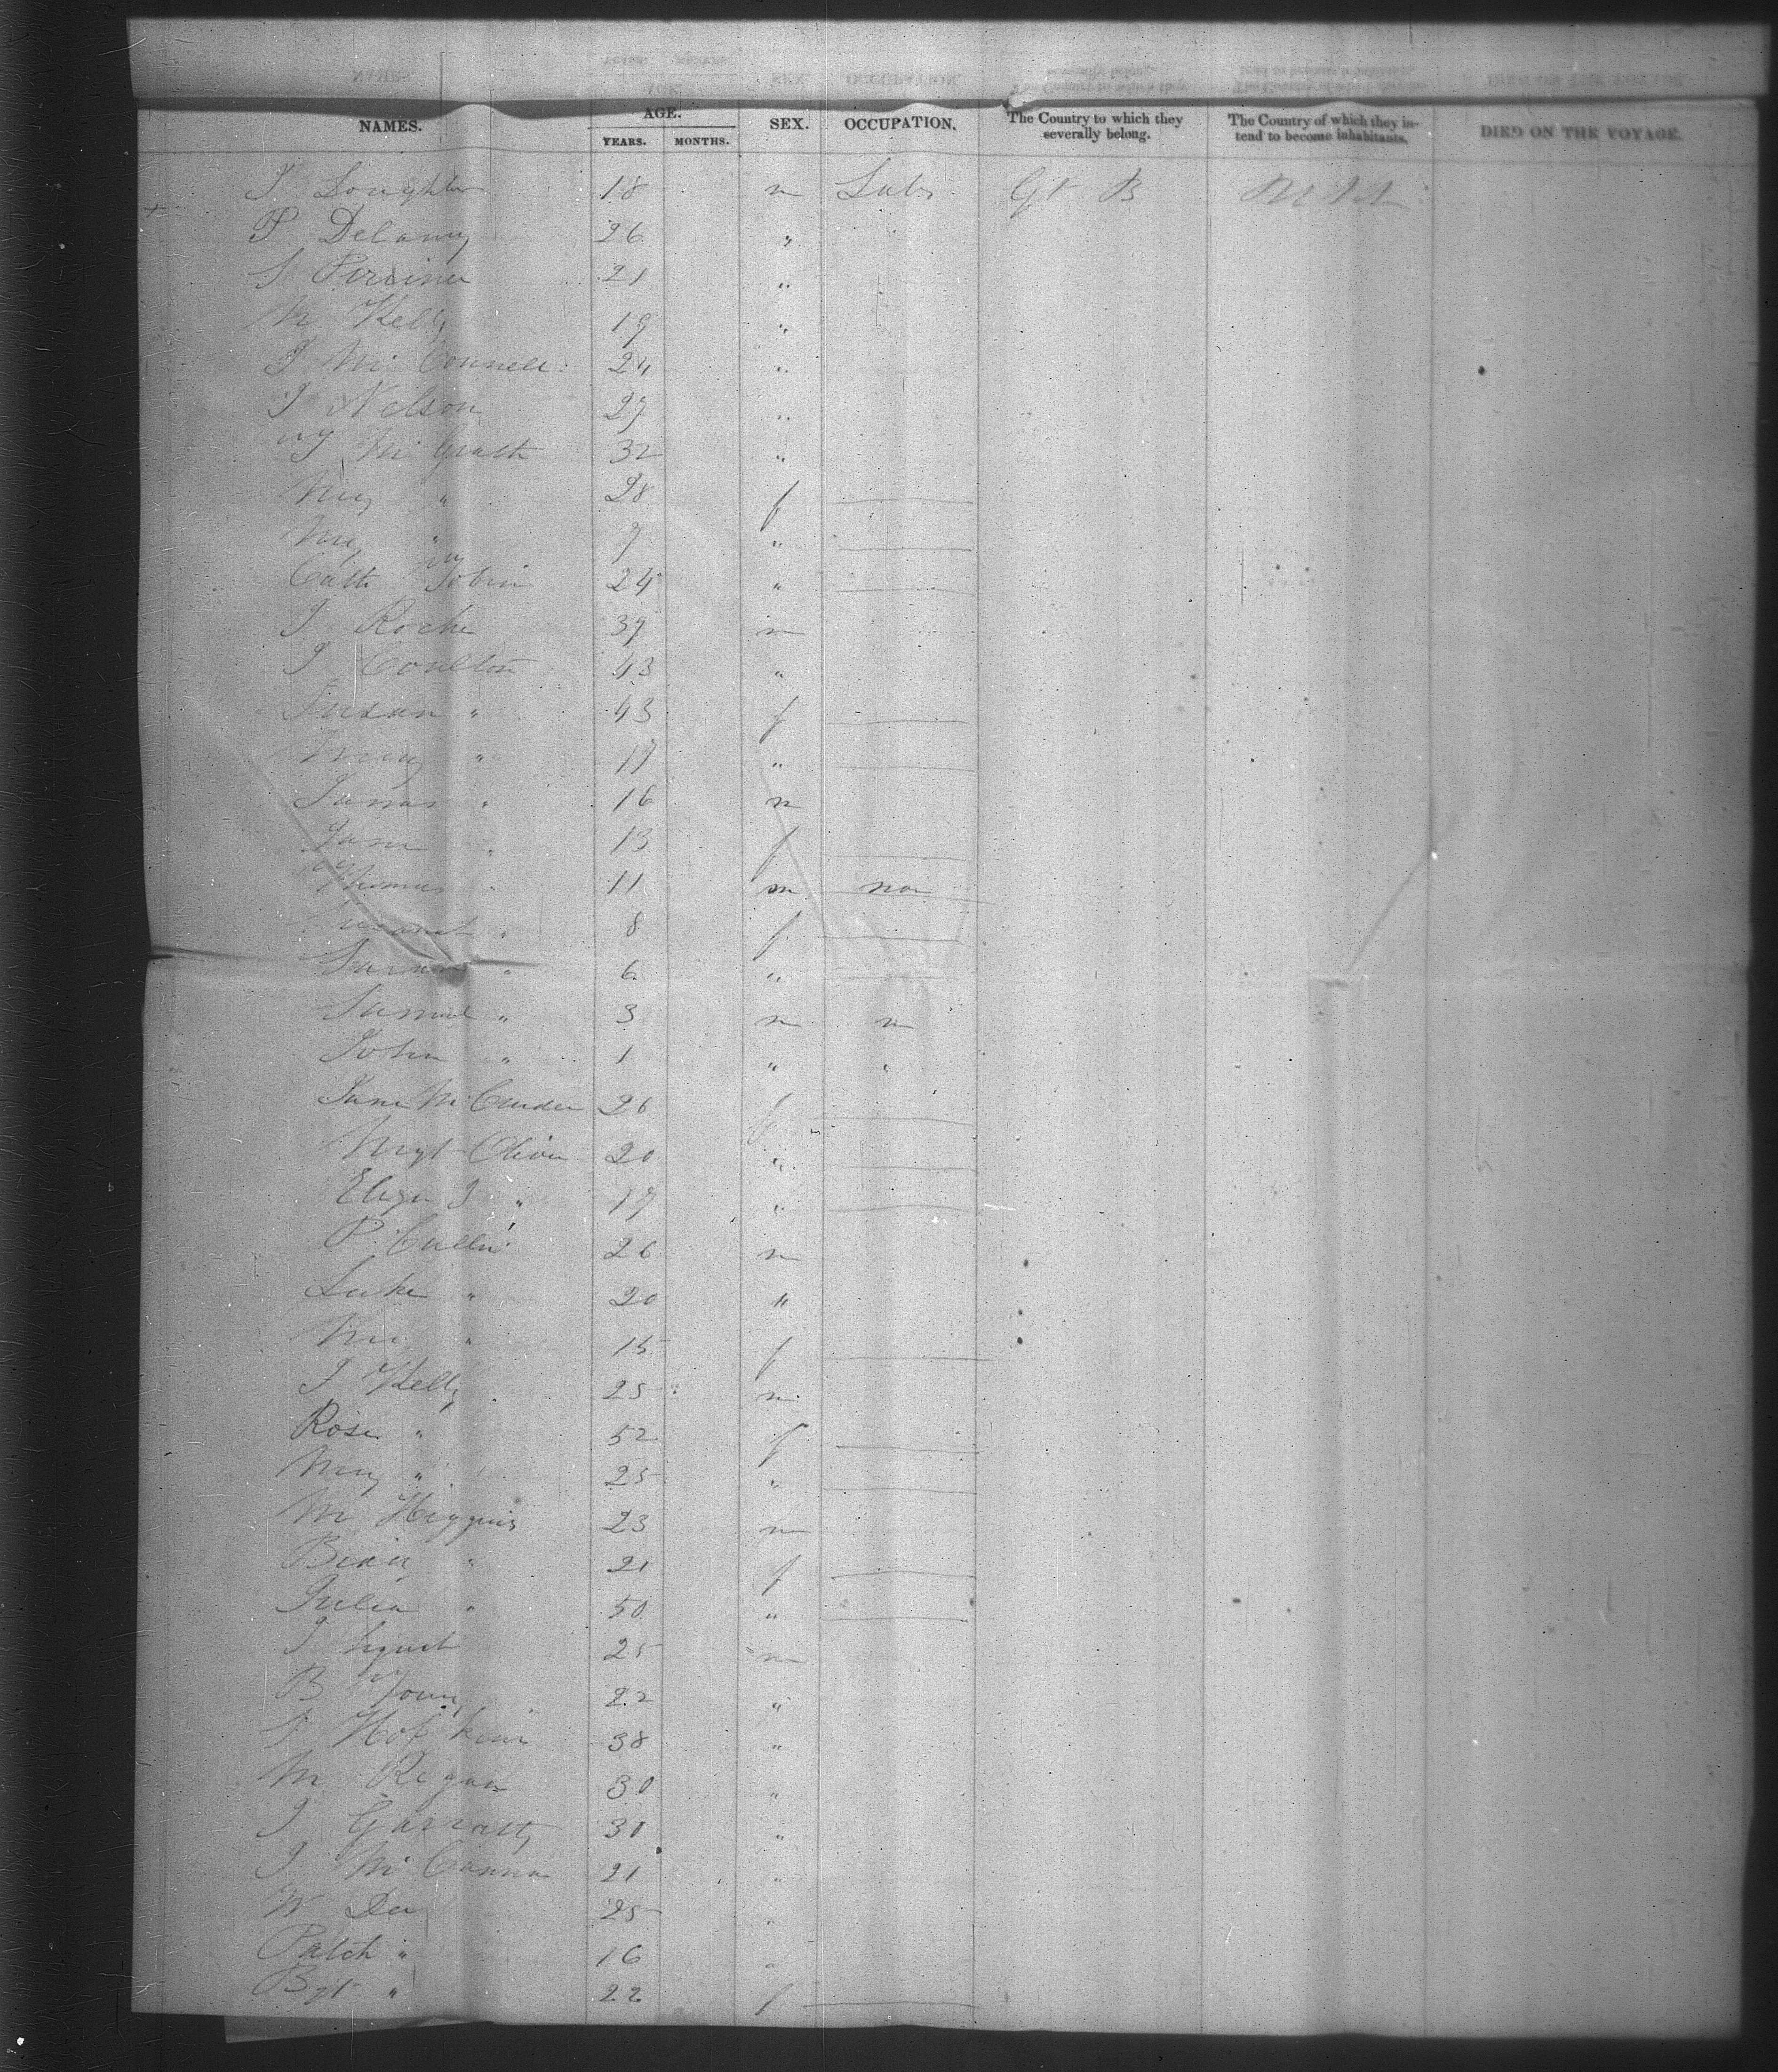 NAMES. AGE. YEARS. MONTHS. SEX. OCCUPATION. The Country to which they severally belong. The Country of which they intend to become inhabitants. DIED ON THE VOYAGE.
18 m Labr Gt B
P Delany 26 "
21 "
M Kelly 19 "
J Mc Connell 24 "
J Nelson 27 "
Mc Grath 32 "
Mary " 28 f
" 7 "
Cath Tobin 24 "
J Roche 37 m
J Coulton 43 "
Susan " 43 f
Mary " 17 "
James " 16 m
Jane " 13 f
Thomas " 11 m non
" 8 f
" 6 "
Samuel " 3 m
John " 1 " "
Jane Mc 26 f
Mrgt Oliver 20 "
Eliza J " 17 "
P Cullen 26 m
Luke " 20 "
" 15 f
J Kelly 25 m
Rose " 52 f
Mary " 25 "
M Higgins 23 m
" 21 f
Julia " 50 "
25 m
B Young 22 "
38 "
M Regan 30 "
J Garratty 30 "
J Mc Canna 21 "
W 25 "
Patck " 16 "
Bgt " 22 f